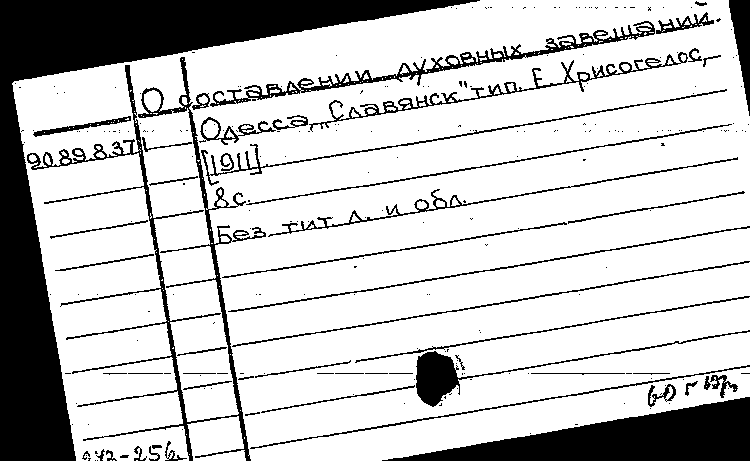 О составлении духовных завещаний.
Одесса, „Славянск" тип. Е. Хрисогелос,
[1911].
8с.
Без тит. л. и обл.
90.89.8.371
60 г